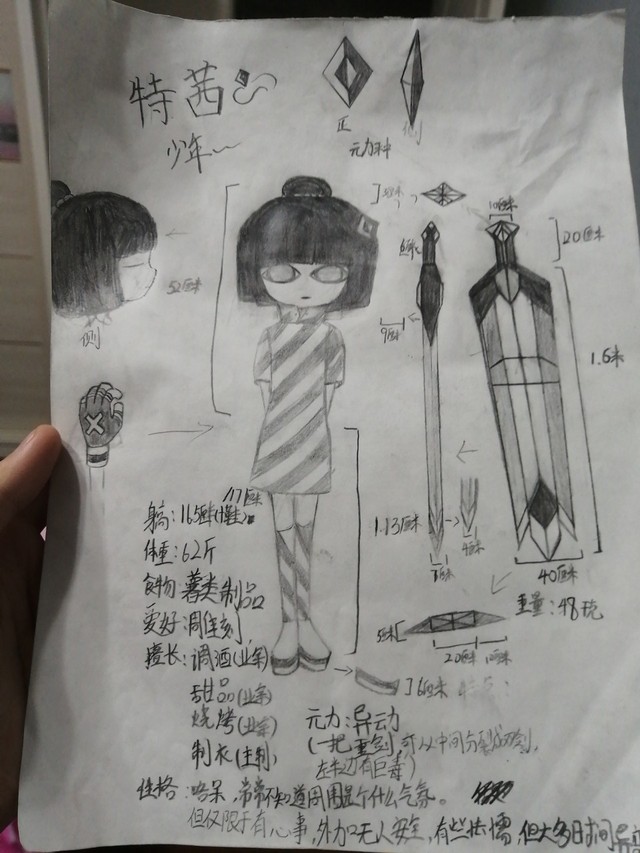 特茜
少年~
正
侧
元力种
10厘米
20厘米
52厘米
侧
9厘米
1.6米
117厘米
1.13厘米
4厘米
40厘米
重量:48克
5厘米
20厘米
10厘米
6厘米
体重:62斤
食物:薯类制品
爱好:
擅长:调酒(业余)
甜品(业余)
烧烤(业余)
制衣(主制)
元力:异动
(一把重剑,可从中间分裂成双剑,
左半边有巨毒)
性格:呆,常常不知道周围是个什么气氛。
但仅限于有心事,外加无人安全,有些怯懦,但大多日时间